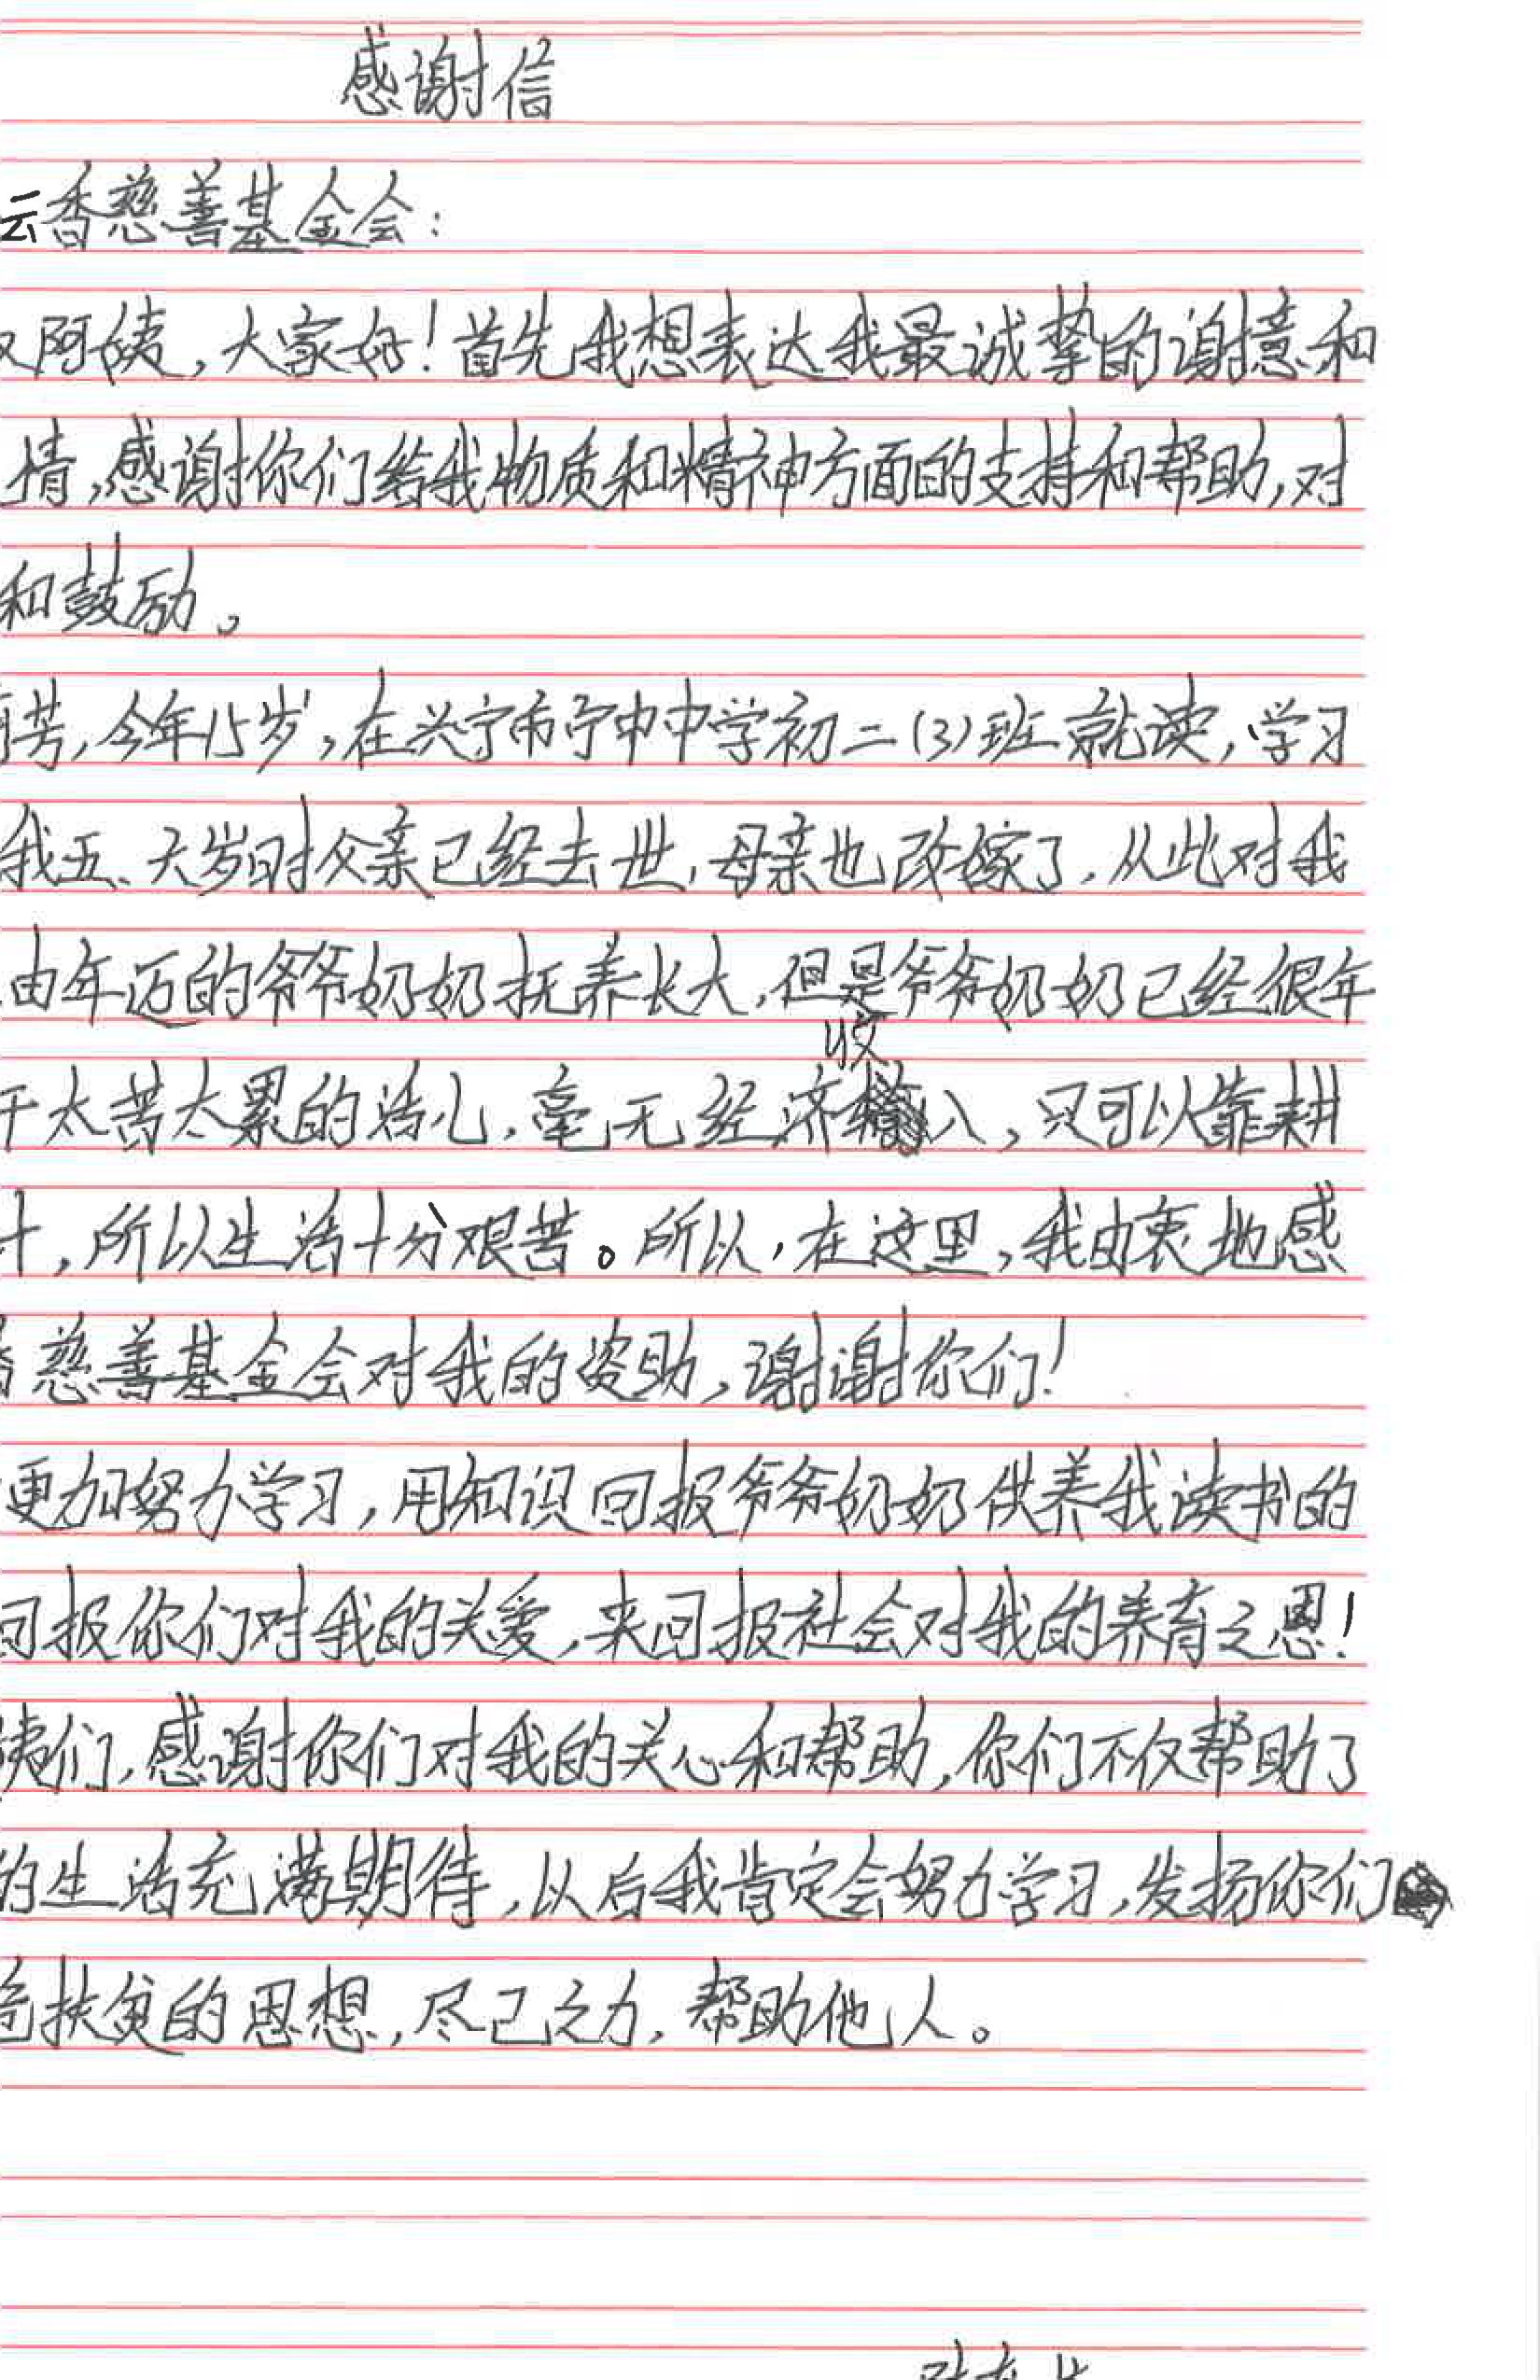 感谢信
云香慈善基金会：
阿姨，大家好！首先我想表达我最诚挚的谢意和
情，感谢你们给我物质和精神方面的支持和帮助，对
和鼓励。
芳，今年15岁，在兴宁市宁中中学初二(3)班就读，学习
我五、六岁时父亲已经去世，母亲也改嫁了，从此对我
由年迈的爷爷奶奶抚养长大，但是爷爷奶奶已经很年
干太苦太累的活儿，毫无经济收入，只可以靠耕
，所以生活十分艰苦。所以，在这里，我由衷地感
慈善基金会对我的资助，谢谢你们！
更加努力学习，用知识回报爷爷奶奶供养我读书的
回报你们对我的关爱，来回报社会对我的养育之恩！
姨们，感谢你们对我的关心和帮助，你们不仅帮助了
的生活充满期待，以后我肯定会努力学习，发扬你们
扶贫的思想，尽己之力，帮助他人。